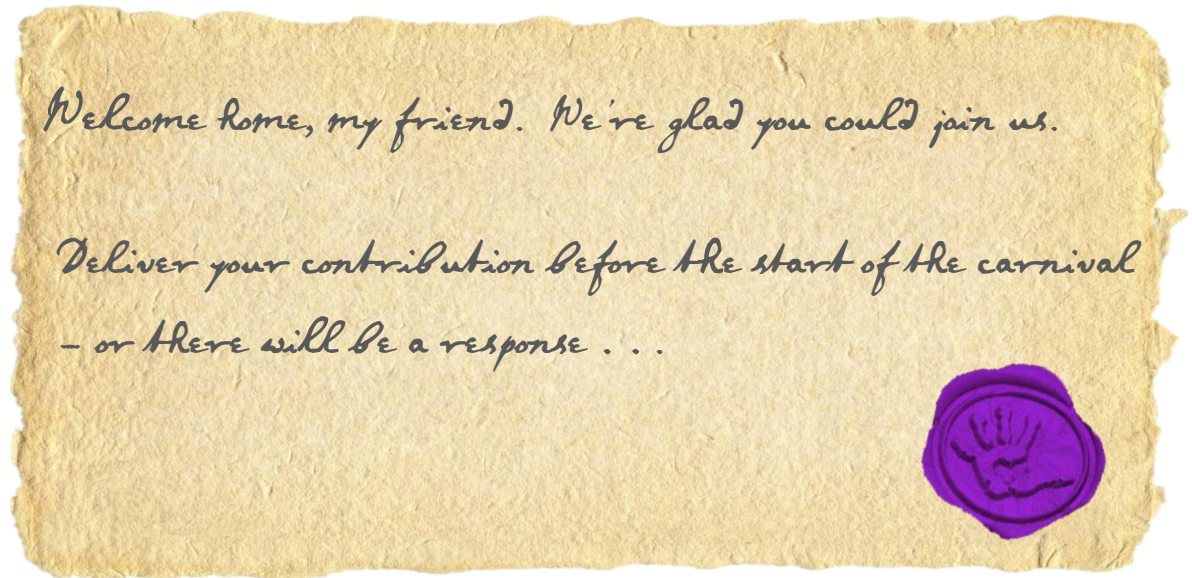 Welcome home, my friend. We're glad you could join us.
Deliver your contribution before the start of the carnival
- or there will be a response . . .